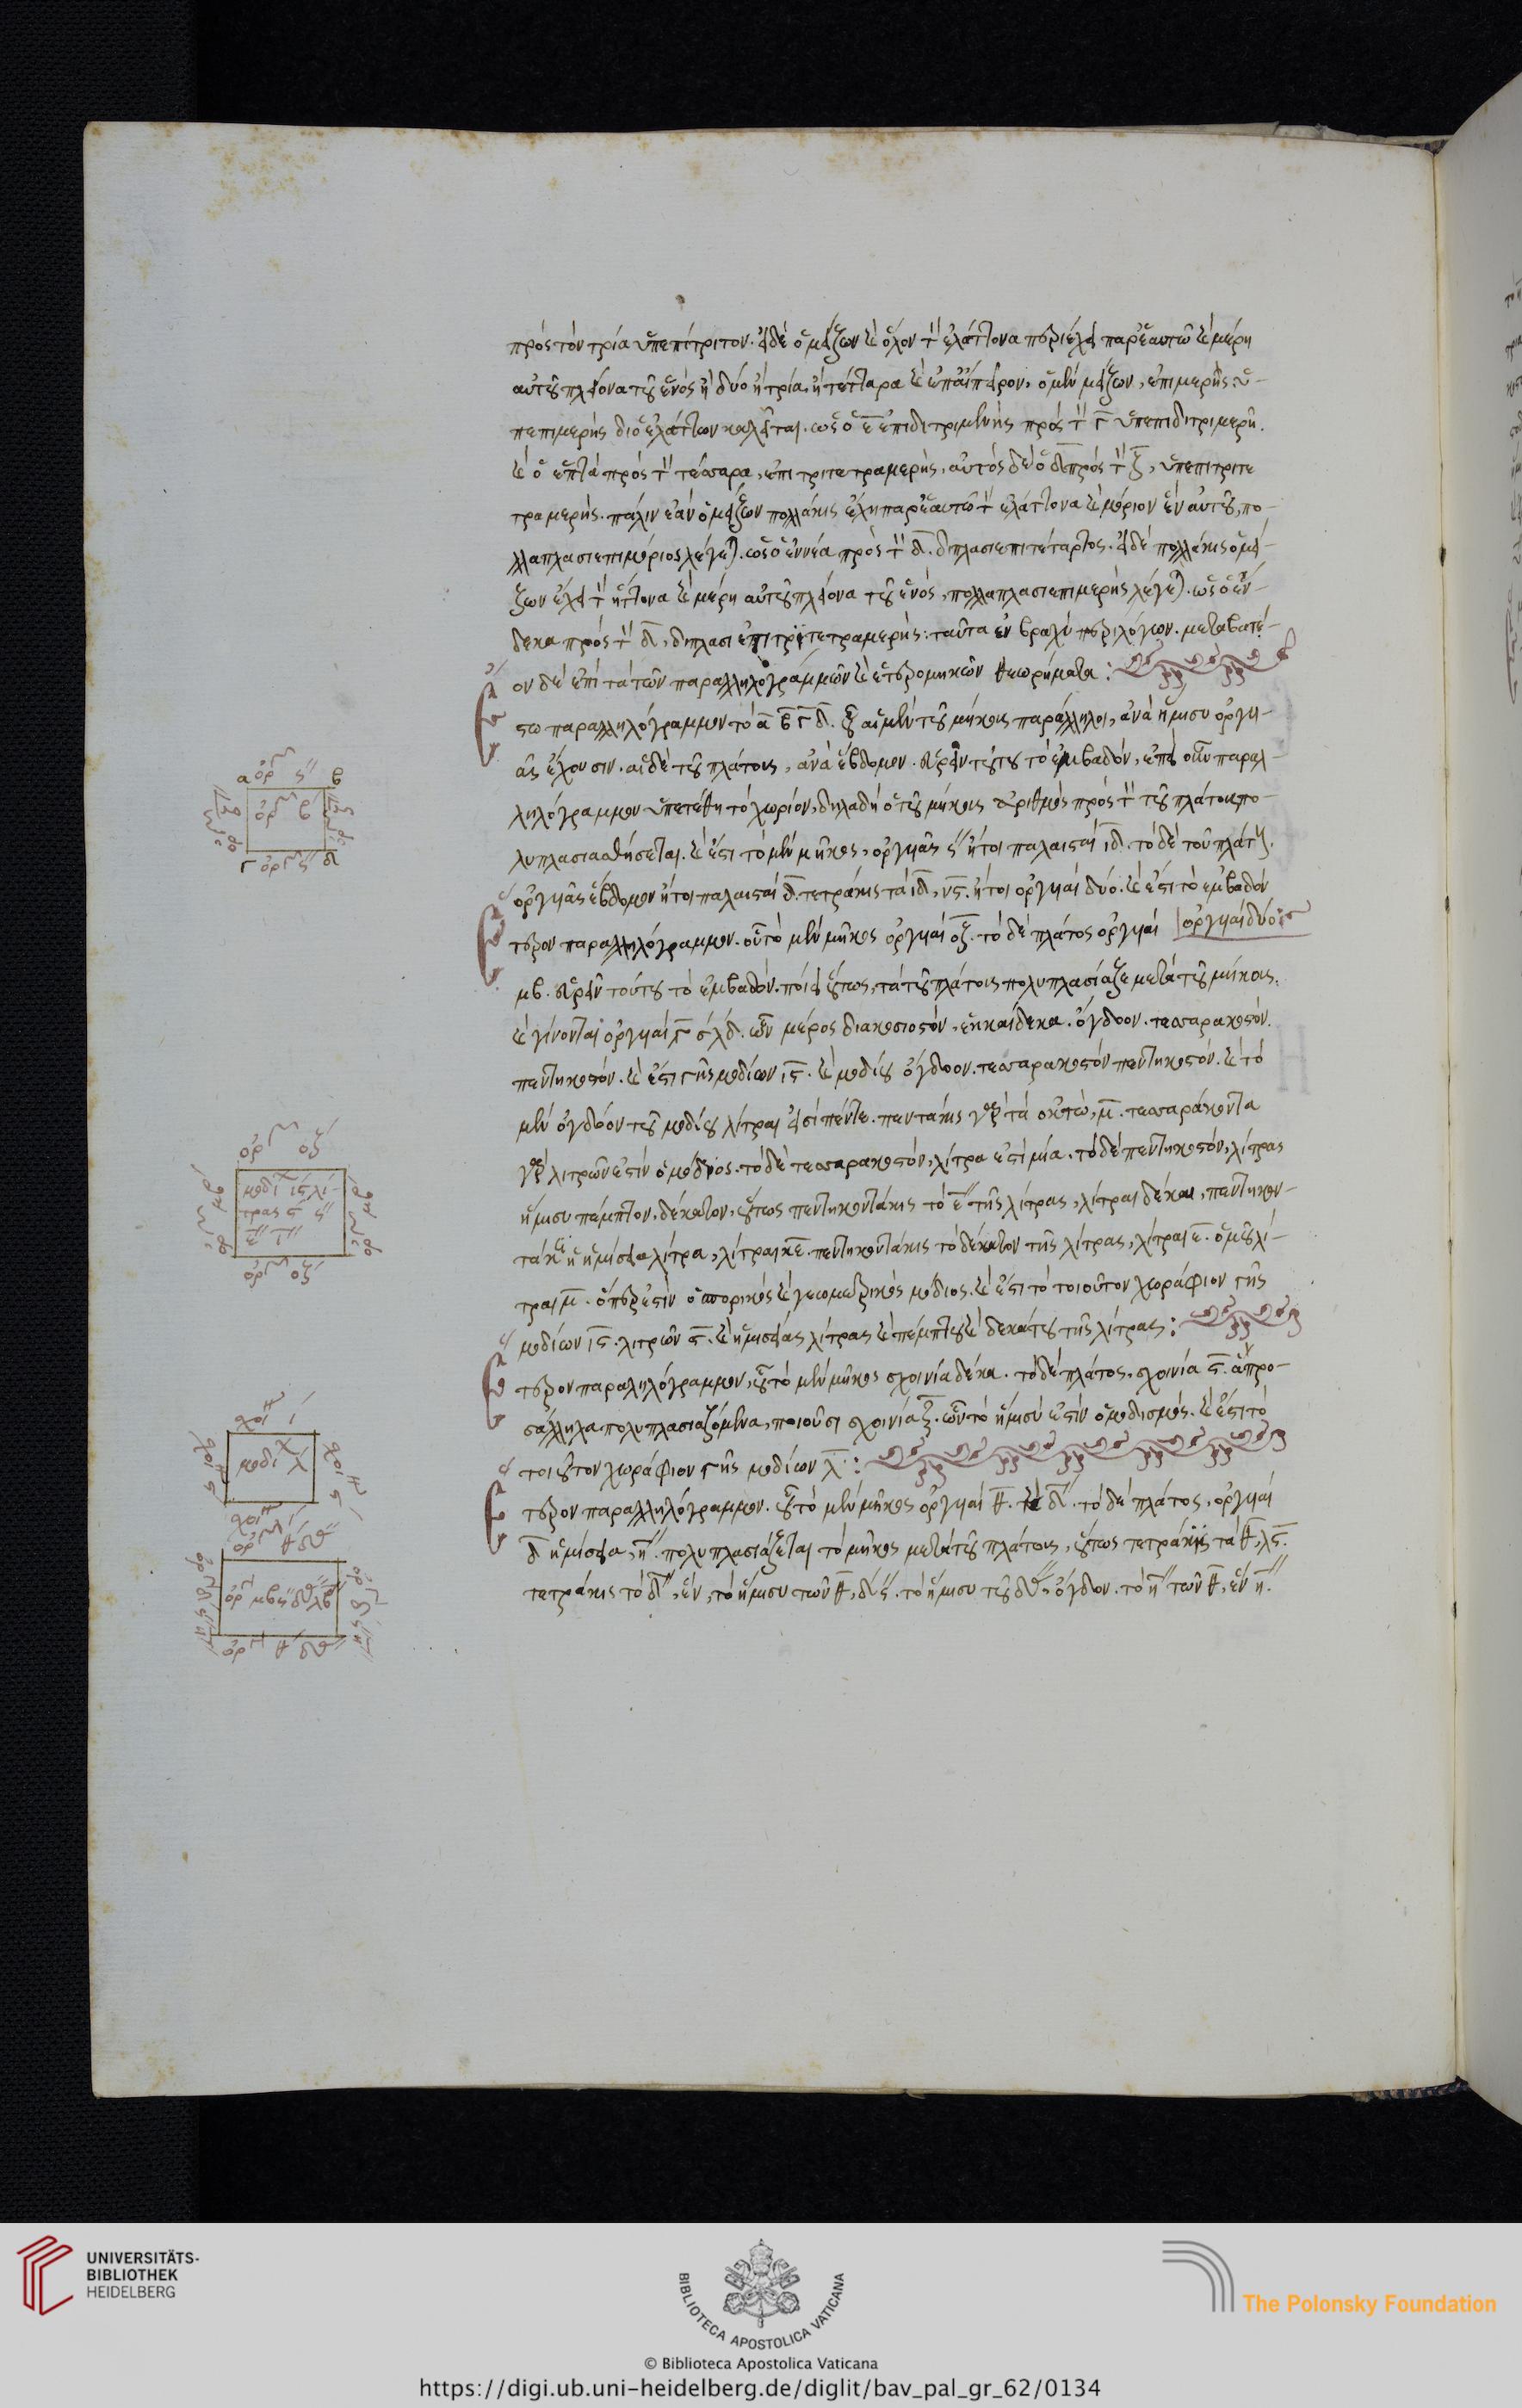 πρὸς τὸν τρία ὑπεπίτριτον. εἰ δὲ ὁ μείζων καὶ ὅλον τὸν ἐλάττονα περιέχει παρ' ἑαυτῶ καὶ μέρη
αὐτοῦ πλείονα τοῦ ἑνὸς ἢ δύο ἢ τρία, ἢ τέτταρα καὶ ἐπ' ἄπειρον, ὁ μὲν μείζων, ἐπιμερὴς. ὑ-
πεπιμερὴς δὲ ὁ ἐλάττων καλεῖται. ὡς ὁ ε ἐπιδιτριμερὴς πρὸς τὸν γ ὑπεπιδιτριμερῆ.
καὶ ὁ ἑπτὰ πρὸς τὸν τέσσαρα, ἐπιτριτετραμερὴς, αὐτὸς δὲ ὁ δ πρὸς τὸν ζ, ὑπεπιτριτε
τραμερής. πάλιν ἐὰν ὁ μείζων πολλάκις ἔχη παρ' ἑαυτῶ τὸν ἐλάττονα καὶ μόριον ἓν αὐτοῦ, πο-
λλαπλασιεπιμόριος λέγεται. ὡς ὁ ἐννέα πρὸς τὸν δ. διπλασιεπιτέταρτος. εἰ δὲ πολλάκις ὁ μεί-
ζων ἔχει τὸν ἥττονα καὶ μέρη αὐτοῦ πλείονα τοῦ ἑνός, πολλαπλασιεπιμερὴς λέγεται. ὡς ὁ ἕν-
δεκα πρὸς τὸν δ, διπλασιεπιτριτετραμερής: ταῦτα ἐν βραχεῖ περιλόγων. μεταβατέ-
ον δὲ ἐπὶ τὰ τῶν παραλληλογράμμων καὶ ἑτερομηκῶν θεωρήματα:
ἔστω παραλληλόγραμμον τὸ α β γ δ. οὗ αἱ μὲν τοῦ μήκους παράλληλοι, ἀνὰ ἥμισυ ὀργυι-
ᾶς ἔχουσιν. αἱ δὲ τοῦ πλάτους, ἀνὰ ἕβδομον. εὑρεῖν τούτου τὸ ἐμβαδόν, ἐπεὶ οὖν παραλ-
ληλόγραμμον ὑπετέθη τὸ χωρίον, δηλαδὴ ὁ τοῦ μήκους ἀριθμὸς πρὸς τὸν τοῦ πλάτους πο-
λυπλασιασθήσεται. καὶ ἔστι τὸ μὲν μῆκος, ὀργυιᾶς ς" ἤτοι παλαισταὶ ιδ. τὸ δὲ τοῦ πλάτους.
ὀργυιᾶς ἕβδομον ἤτοι παλαισταὶ δ. τετράκις τὰ ιδ, νς. ἤτοι ὀργυιαὶ δύο. καὶ ἔστι τὸ ἐμβαδὸν
ὀργυιαὶ δύο:
ἕτερον παραλληλόγραμμον. οὗ τὸ μὲν μῆκος ὀργυιαὶ οζ. τὸ δὲ πλάτος ὀργυιαὶ
μβ. εὑρεῖν τούτου τὸ ἐμβαδόν. ποίει οὕτως, τὰ τοῦ πλάτους πολυπλασίαζε μετὰ τοῦ μήκους.
καὶ γίνονται ὀργυιαὶ γ σλδ. ὧν μέρος διακοσιοστόν, ἑκκαίδεκα. ὄγδοον. τεσσαρακοστόν.
πεντηκοστόν. καὶ ἔστι γῆς μοδίων ις. καὶ μοδίου ὄγδοον. τεσσαρακοστὸν πεντηκοστόν. καὶ τὸ
μὲν ὄγδοον τοῦ μοδίου λίτραι εἰσὶ πέντε. πεντάκις γὰρ τὰ ὀκτώ, μ. τεσσαράκοντα
γὰρ λιτρῶν ἐστὶν ὁ μόδιος. τὸ δὲ τεσσαρακοστόν, λίτρα ἐστὶ μία. τὸ δὲ πεντηκοστόν, λίτρας
ἥμισυ πέμπτον, δέκατον, οὕτως πεντηκοντάκις τὸ ε" τῆς λίτρας, λίτραι δέκα, πεντηκον-
τάκις ἡ ἡμίσεια λίτρα, λίτραι κε. πεντηκοντάκις τὸ δέκατον τῆς λίτρας, λίτραι ε. ὁμοῦ λί-
τραι μ. ὅπερ ἐστὶν ὁ σπορικὸς καὶ γεωμετρικὸς μόδιος. καὶ ἔστι τὸ τοιοῦτον χωράφιον γῆς
μοδίων ις. λιτρῶν ς. καὶ ἡμισείας λίτρας καὶ πέμπτου καὶ δεκάτου τῆς λίτρας:
ἕτερον παραλληλόγραμμον, οὗ τὸ μὲν μῆκος σχοινία δέκα. τὸ δὲ πλάτος, σχοινία ς. ἃ προ-
σάλληλα πολυπλασιαζόμενα, ποιοῦσι σχοινία ξ. ὧν τὸ ἥμισύ ἐστιν ὁ μοδισμός. καὶ ἔστι τὸ
τοιοῦτον χωράφιον γῆς μοδίων λ:
ἕτερον παραλληλόγραμμον. οὗ τὸ μὲν μῆκος ὀργυιαὶ θ. καὶ δ". τὸ δὲ πλάτος, ὀργυιαὶ
δ ἡμίσεια, η". πολυπλασιάζεται τὸ μῆκος μετὰ τοῦ πλάτους, οὕτως τετράκις τὰ θ, λς.
τετράκις τὸ δ", ἕν, τὸ ἥμισυ τῶν θ, δ ς". τὸ ἥμισυ τοῦ δου, ὄγδοον. τὸ η" τῶν θ, ἓν η".
α ὀρ ς" β
ὀρ β
γ ὀρ ς" δ
ὀρ οζ
μοδί ις λί-
τρας ς ς"
ε" ι"
ὀρ οζ
σχοι ι
μοδί λ
σχοι ι
ὀρ θ δου
ὀρ μβ
ὀρ θ δου
UNIVERSITÄTS-
BIBLIOTHEK
HEIDELBERG
BIBLIOTECA APOSTOLICA VATICANA
The Polonsky Foundation
© Biblioteca Apostolica Vaticana
https://digi.ub.uni-heidelberg.de/diglit/bav_pal_gr_62/0134